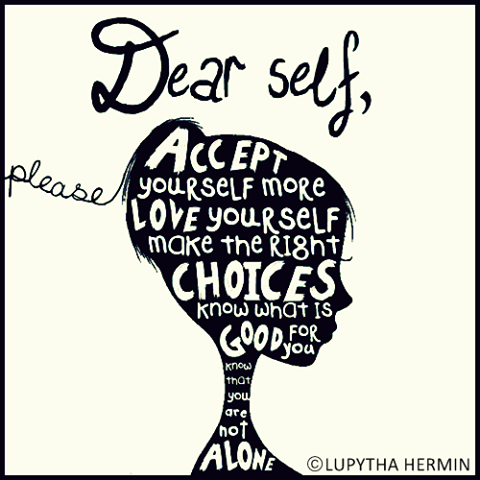 Dear self,
please
ACCEPT
yourself more
LOVE yourself
make the right
CHOICES
know what is
GOOD FOR
you
know
that
you
are
not
ALONE
©LUPYTHA HERMIN